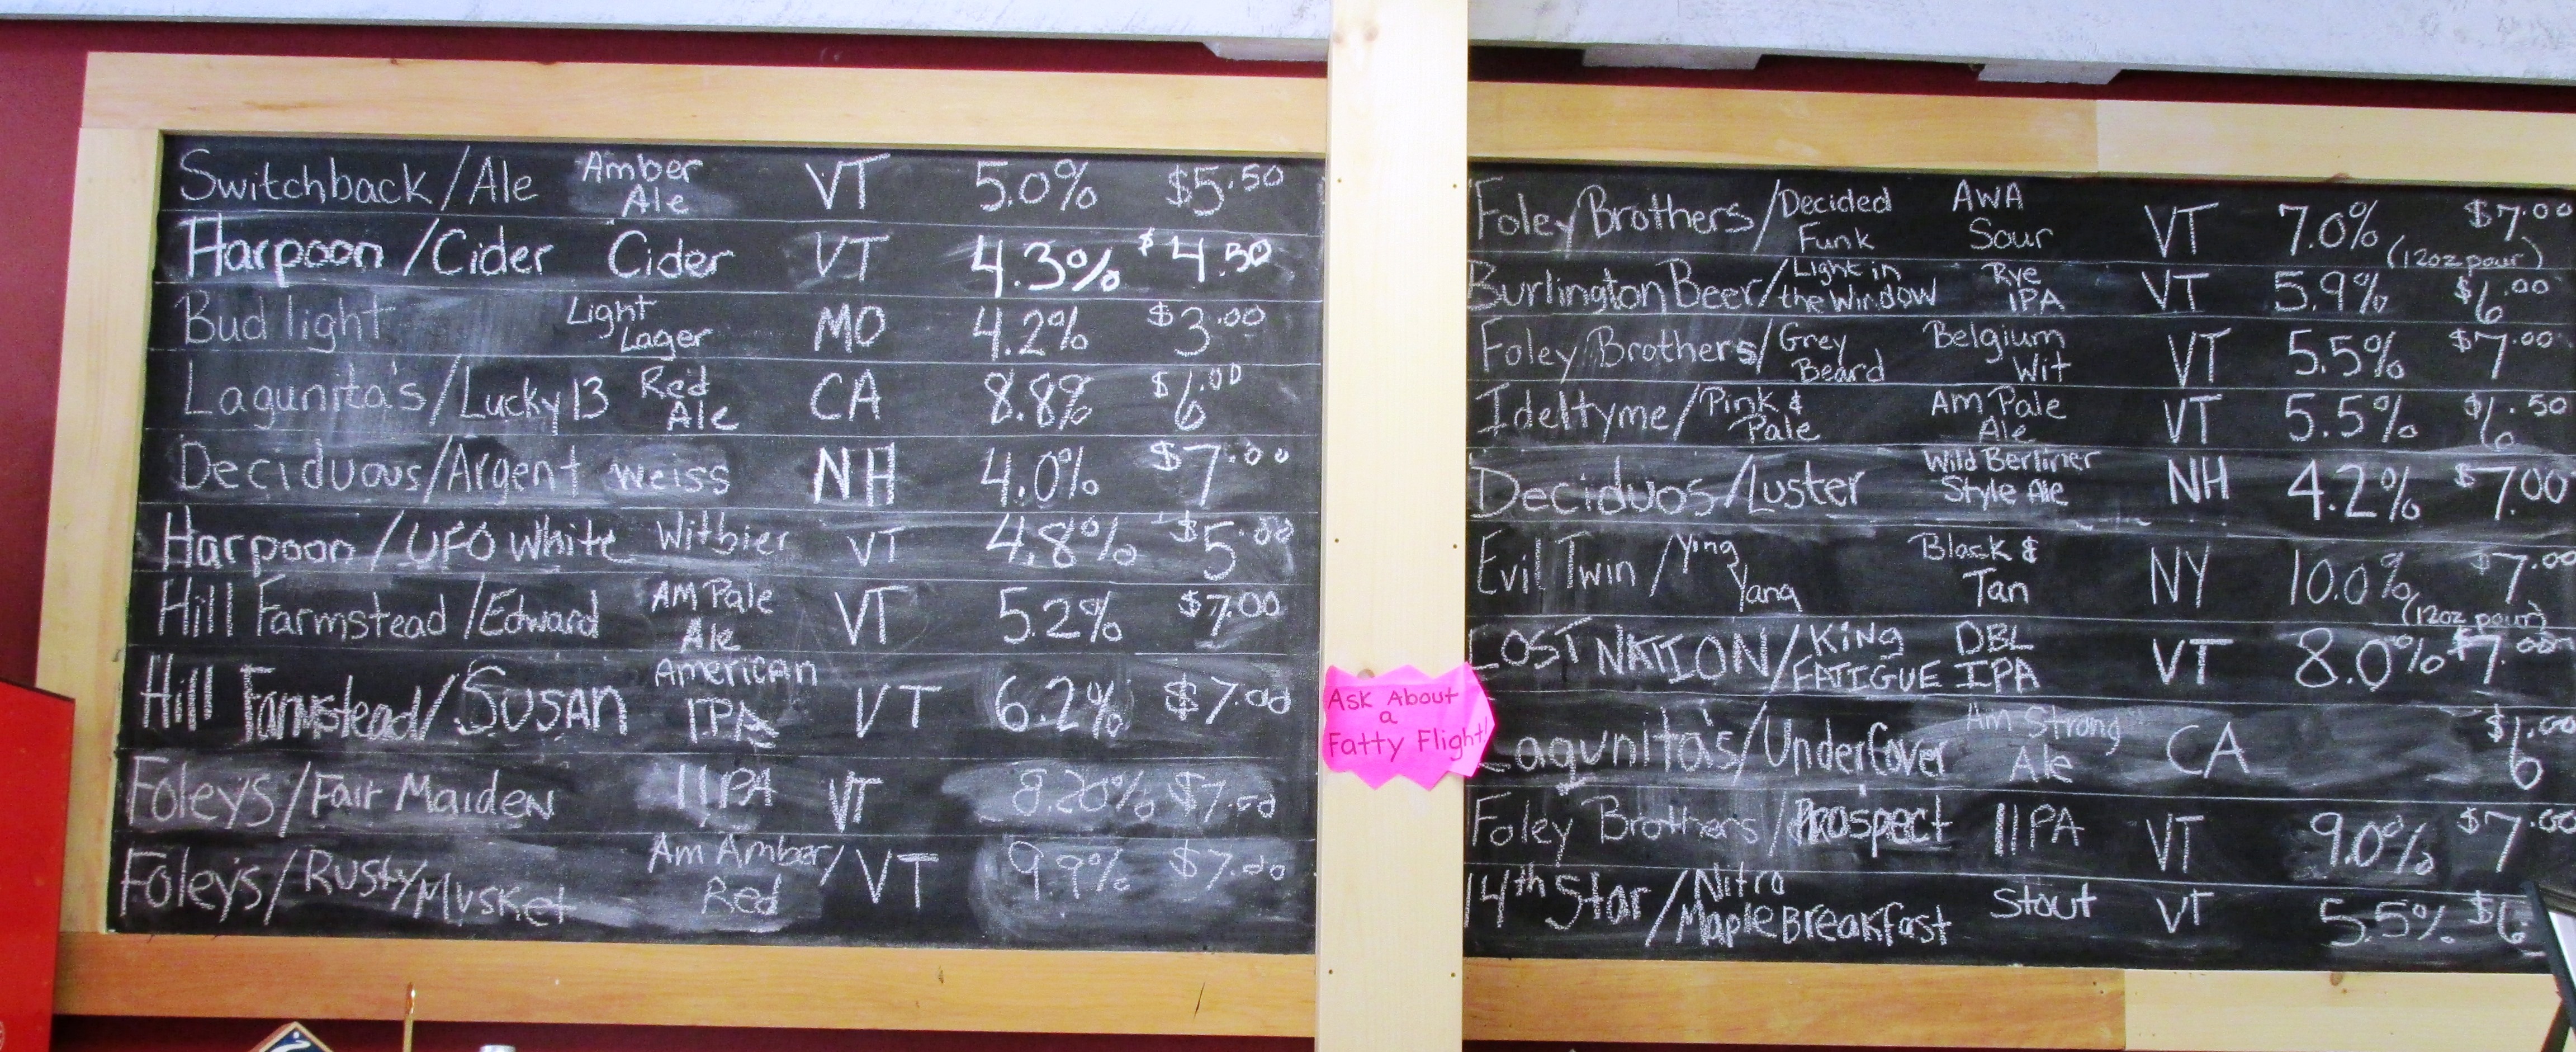 Switchback/Ale Amber Ale VT 5.0% $5.50
Harpoon/Cider Cider VT 4.3% $4.50
Bud light Light Lager MO 4.2% $3.00
Lagunita's/Lucky 13 Red Ale CA 8.8% $6.00
Deciduous/Argent Weiss NH 4.0% $7.00
Harpoon/UFO White Witbier VT 4.8% $5.00
Hill Farmstead/Edward AM Pale Ale VT 5.2% $7.00
Hill Farmstead/Susan American IPA VT 6.2% $7.00
Foley's/Fair Maiden IIPA VT 8.20% $7.00
Foley's/Rusty Musket Am Amber/Red VT 9.9% $7.00
Ask About
a
Fatty Flight!
Foley Brothers/Decided Funk AWA Sour VT 7.0% $7.00 (12oz pour)
Burlington Beer/Light in the Window Rye IPA VT 5.9% $6.00
Foley Brothers/Grey Beard Belgium Wit VT 5.5% $7.00
Ideltyme/Pink & Pale Am Pale Ale VT 5.5% $6.50
Deciduos/Luster Wild Berliner Style Ale NH 4.2% $7.00
Evil Twin/Ying Yang Black & Tan NY 10.0% $7.00 (12oz pour)
LOST NATION/KING FATIGUE DBL IPA VT 8.0% $7.00
Lagunita's/Undercover Am Strong Ale CA $6.00
Foley Brothers/Prospect IIPA VT 9.0% $7.00
14th Star/Nitro Maple Breakfast Stout VT 5.5% $6